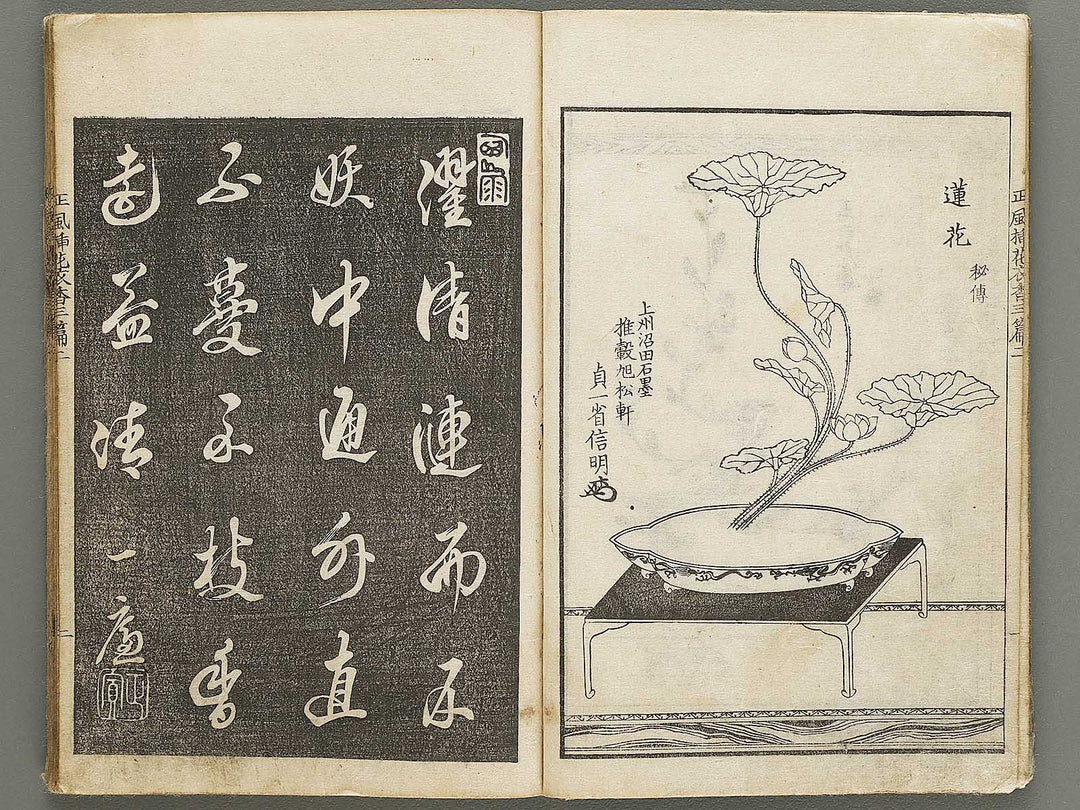 正風挿花衣香三篇二
蓮花
秘傳
上州沼田石墨
推轂旭松軒
貞一省信明
濯清漣而不
妖中通外直
不蔓不枝香
遠益清
正風挿花衣香三篇二